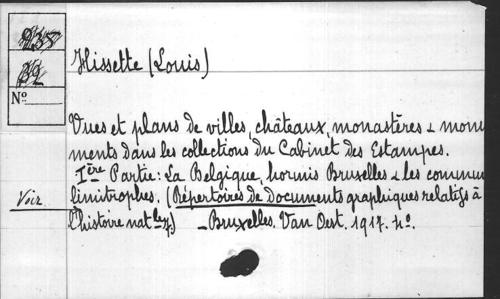 Hissette (Louis)
No
Vues et plans de villes, châteaux, monastères & monu
ments dans les collections du Cabinet des Estampes.
Ière Partie: La Belgique, hormis Bruxelles & les commun
Voir limitrophes. (Répertoires de documents graphiques relatifs à
l'histoire nat le.) - Bruxelles. Van Oest. 1917. 4o.